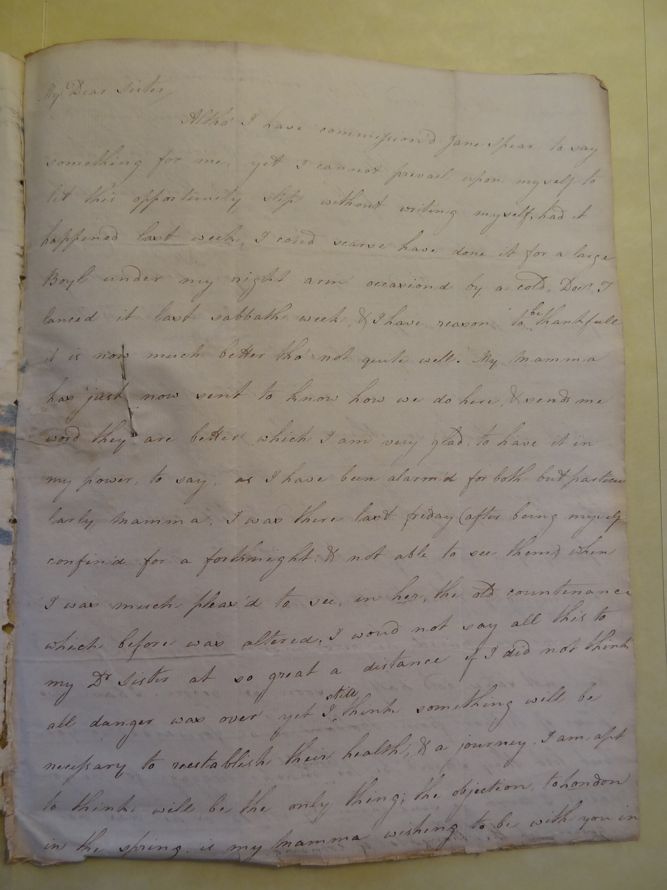 My Dear Sister,
Altho' I have commission'd Jane Spear to say
something for me, yet I cannot prevail upon myself to
let this opportunity slip without writing myself, had it
happened last week, I could scarse have done it for a large
Boyl under my right arm occasiond by a cold. Doct. T
lanced it last sabbath week, & I have reason to be thankfull
it is now much better tho' not quite well. My Mamma
has just now sent to know how we do here, & sends me
word they are better which I am very glad to have it in
my power, to say, as I have been alarm'd for both but particu
larly Mamma. I was there last friday (after being myself
confin'd for a forthnight & not able to see them) when
I was much pleas'd to see, in her, the old countenance
which before was altered. I would not say all this to
my Dr Sister at so great a distance if I did not think
all danger was over yet I still think something will be
necessary to reestablish their health, & a journey I am apt
to think will be the only thing; the objection to London
in the spring is my Mamma wishing to be with you in